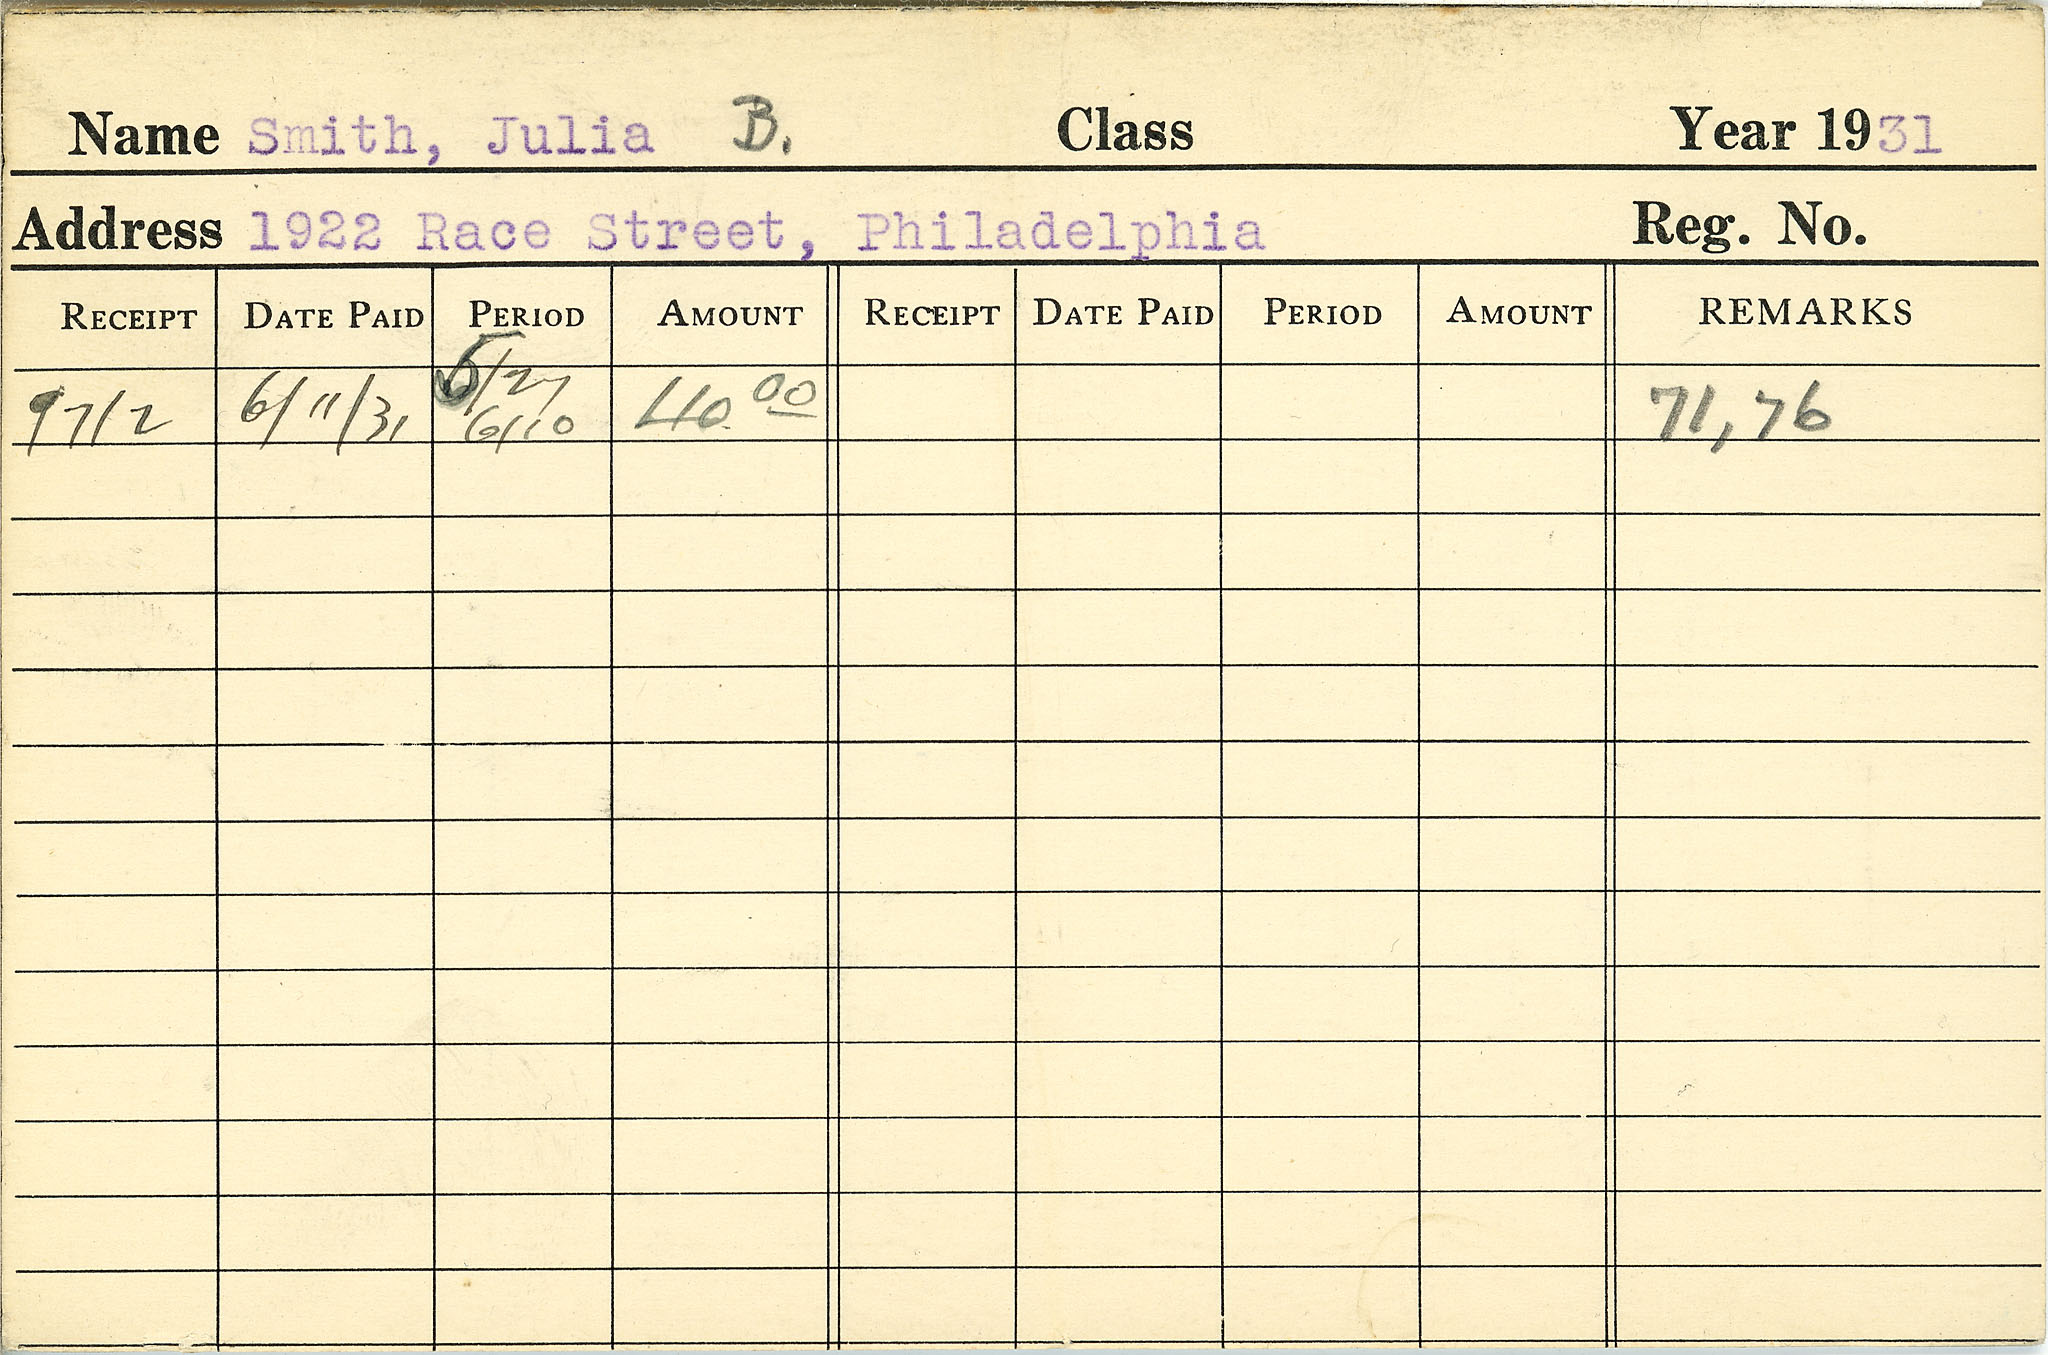 Name Smith, Julia B. Class Year 1931
Address 1922 Race Street, Philadelphia Reg. No.
RECEIPT DATE PAID PERIOD AMOUNT RECEIPT DATE PAID PERIOD AMOUNT REMARKS
9712 6/11/31 5/27 40.00 71,76
6/10